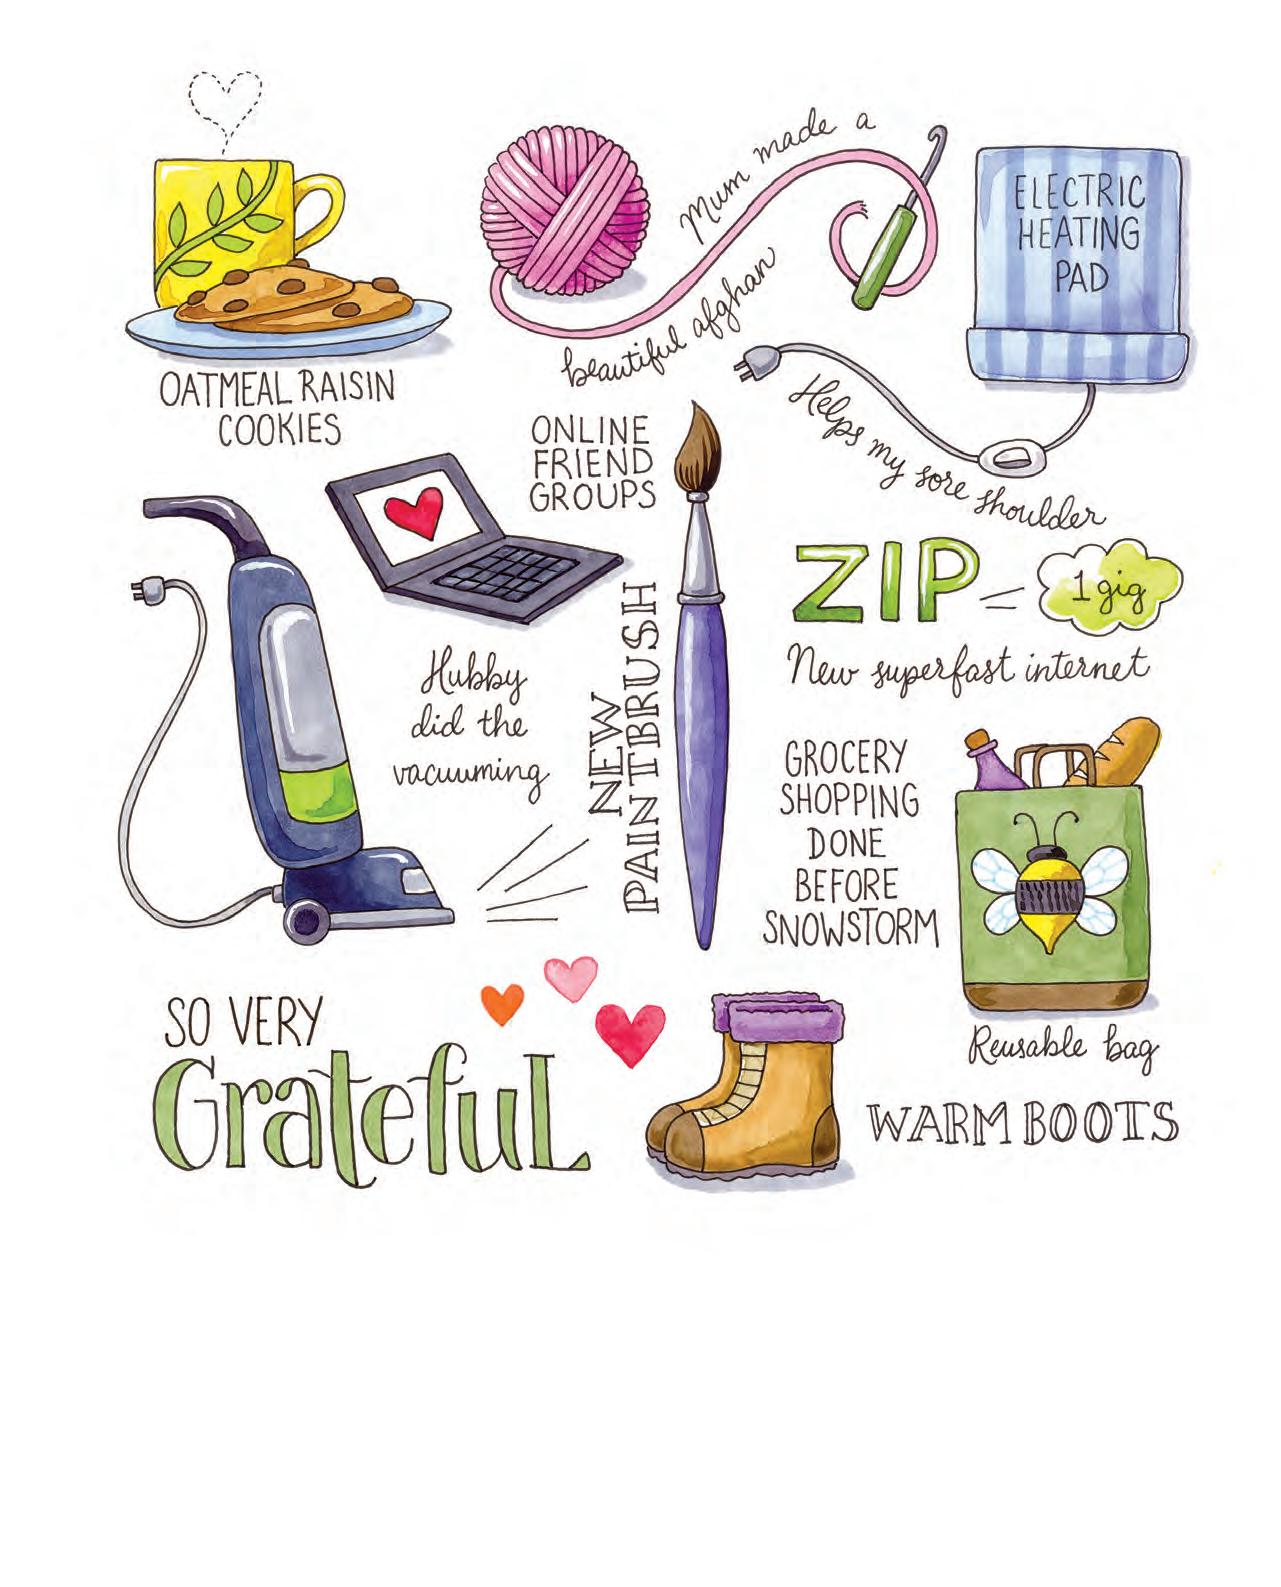 Mum made a
beautiful afghan
ELECTRIC
HEATING
PAD
Helps my sore shoulder
OATMEAL RAISIN
COOKIES
ONLINE
FRIEND
GROUPS
ZIP
1 gig
New superfast internet
Hubby
did the
vacuuming
NEW
PAINTBRUSH
GROCERY
SHOPPING
DONE
BEFORE
SNOWSTORM
Reusable bag
SO VERY
Grateful
WARM BOOTS